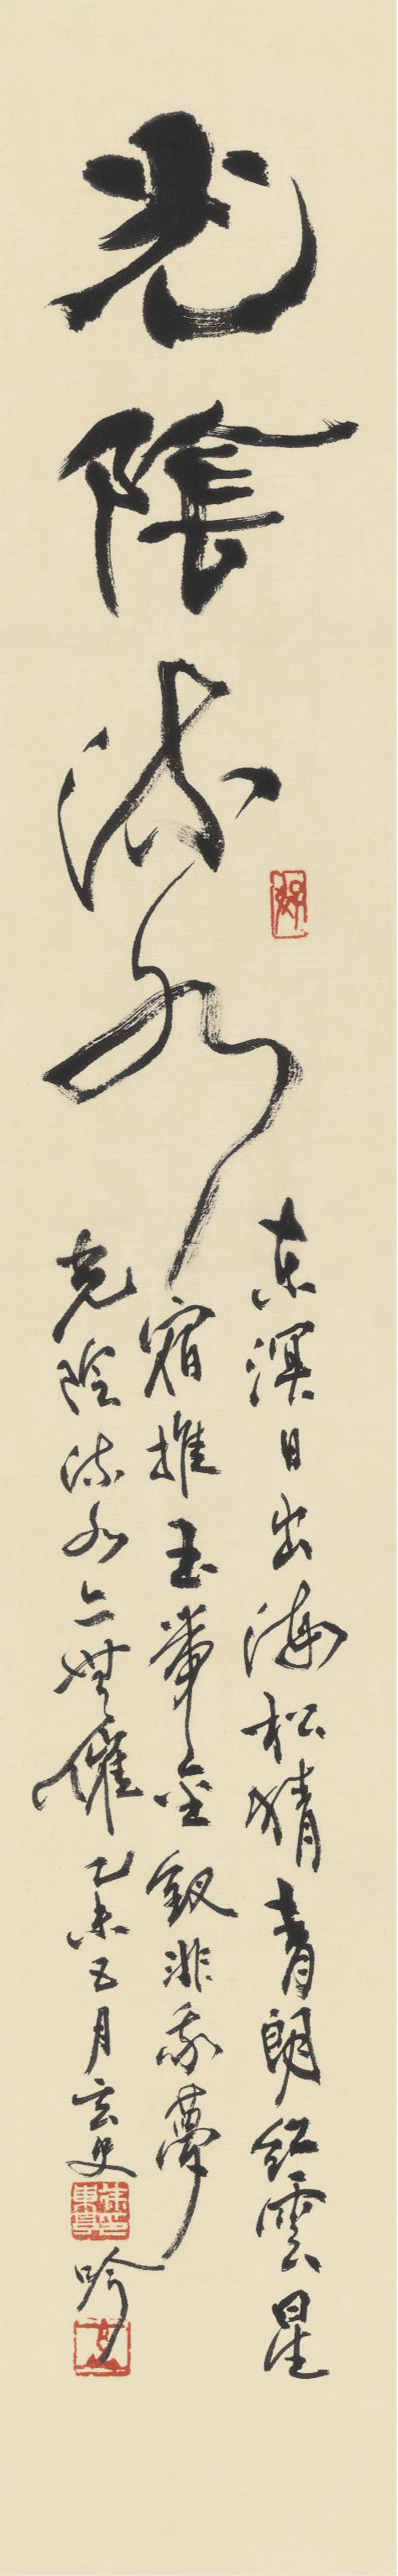 光陰流水
東溟日出海松猜青朗紅雲星
宿推玉帶金釵非我夢
光陰流水亦無催乙未五月玄史
吟